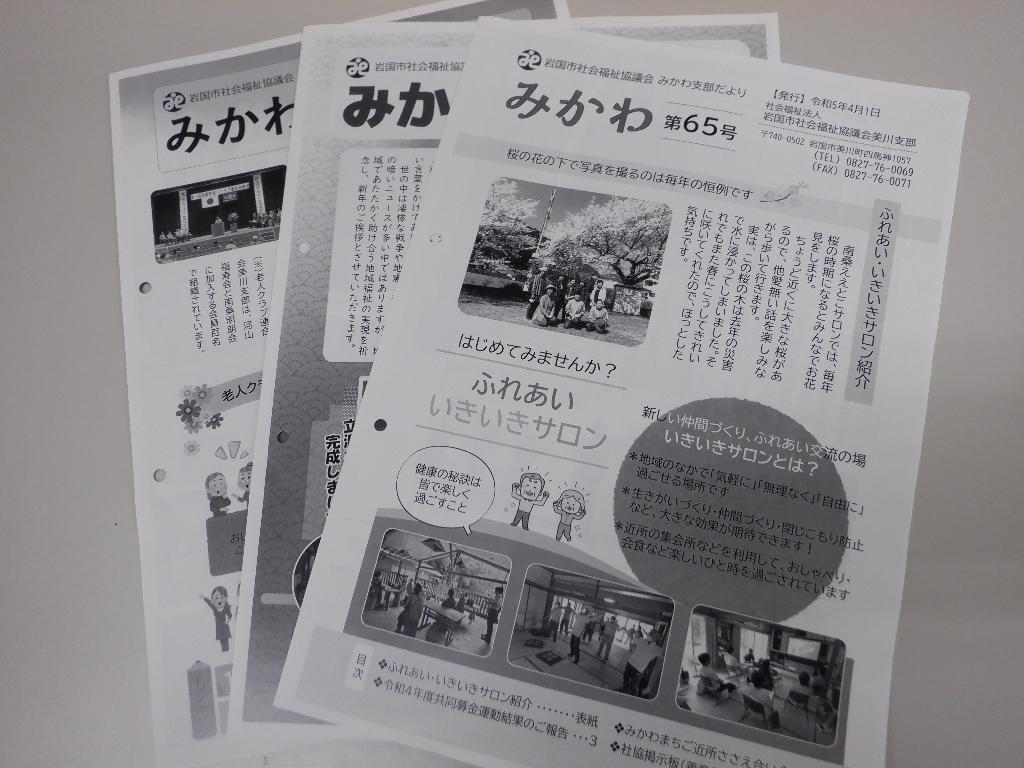 岩国市社会福祉協議会
みかわ
(※)老人クラブ連合
会美川支部は、河山
福寿会と南桑明朗会
に加入する会員百名
で組織されています。
老人クラ
岩国市社会福祉協議
みかわ
い言葉をかけて
世の中は凄惨な戦争や地震
の暗いニュースが多い中ではありますが、
域であたたかく助け合う地域福祉の実現を祈
念し、新年のご挨拶とさせていただきます。
完成しまし
岩国市社会福祉協議会 みかわ支部だより
みかわ 第65号
【発行】令和5年4月1日
社会福祉法人
岩国市社会福祉協議会美川支部
〒740-0502 岩国市美川町四馬神1057
(TEL) 0827-76-0069
(FAX) 0827-76-0071
桜の花の下で写真を撮るのは毎年の恒例です
ふれあい・いきいきサロン紹介
南桑ええとこサロンでは、毎年
桜の時期になるとみんなでお花
見をします。
ちょうど近くに大きな桜があ
るので、他愛無い話を楽しみな
がら歩いて行きます。
実は、この桜の木は去年の災害
で水に浸かってしまいました。そ
れでもまた春にこうしてきれい
に咲いてくれたので、ほっとした
気持ちです。
はじめてみませんか？
ふれあい
いきいきサロン
健康の秘訣は
皆で楽しく
過ごすこと
新しい仲間づくり、ふれあい交流の場
いきいきサロンとは？
*地域のなかで「気軽に」「無理なく」「自由に」
過ごせる場所です
*生きがいづくり・仲間づくり・閉じこもり防止
など、大きな効果が期待できます！
*近所の集会所などを利用して、おしゃべり・
会食など楽しいひと時を過ごされています
目次
❖ふれあい・いきいきサロン紹介 ………表紙
❖令和4年度共同募金運動結果のご報告 …3
❖みかわまちご近所ささえ合い
❖社協掲示板